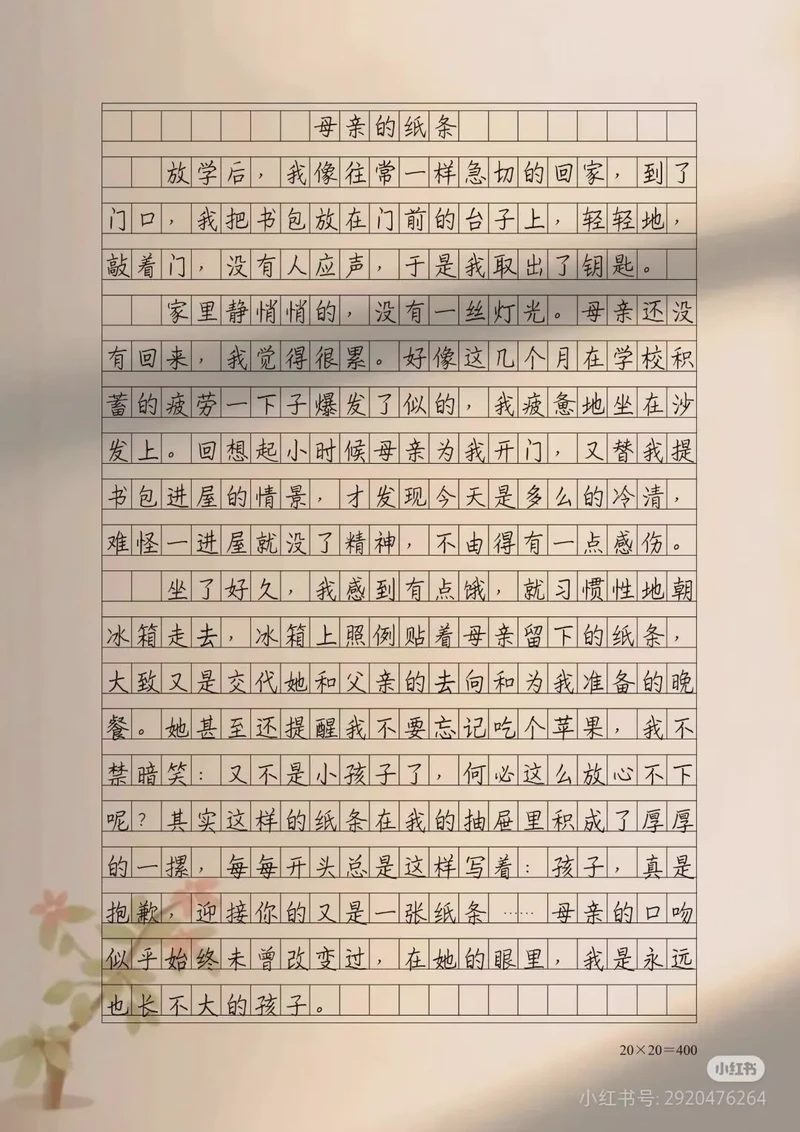 母亲的纸条
放学后，我像往常一样急切的回家，到了
门口，我把书包放在门前的台子上，轻轻地，
敲着门，没有人应声，于是我取出了钥匙。
家里静悄悄的，没有一丝灯光。母亲还没
有回来，我觉得很累。好像这几个月在学校积
蓄的疲劳一下子爆发了似的，我疲惫地坐在沙
发上。回想起小时候母亲为我开门，又替我提
书包进屋的情景，才发现今天是多么的冷清，
难怪一进屋就没了精神，不由得有一点感伤。
坐了好久，我感到有点饿，就习惯性地朝
冰箱走去，冰箱上照例贴着母亲留下的纸条，
大致又是交代她和父亲的去向和为我准备的晚
餐。她甚至还提醒我不要忘记吃个苹果，我不
禁暗笑：又不是小孩子了，何必这么放心不下
呢？其实这样的纸条在我的抽屉里积成了厚厚
的一摞，每每开头总是这样写着：孩子，真是
抱歉，迎接你的又是一张纸条……母亲的口吻
似乎始终未曾改变过，在她的眼里，我是永远
也长不大的孩子。
20×20=400
小红书
小红书号: 2920476264